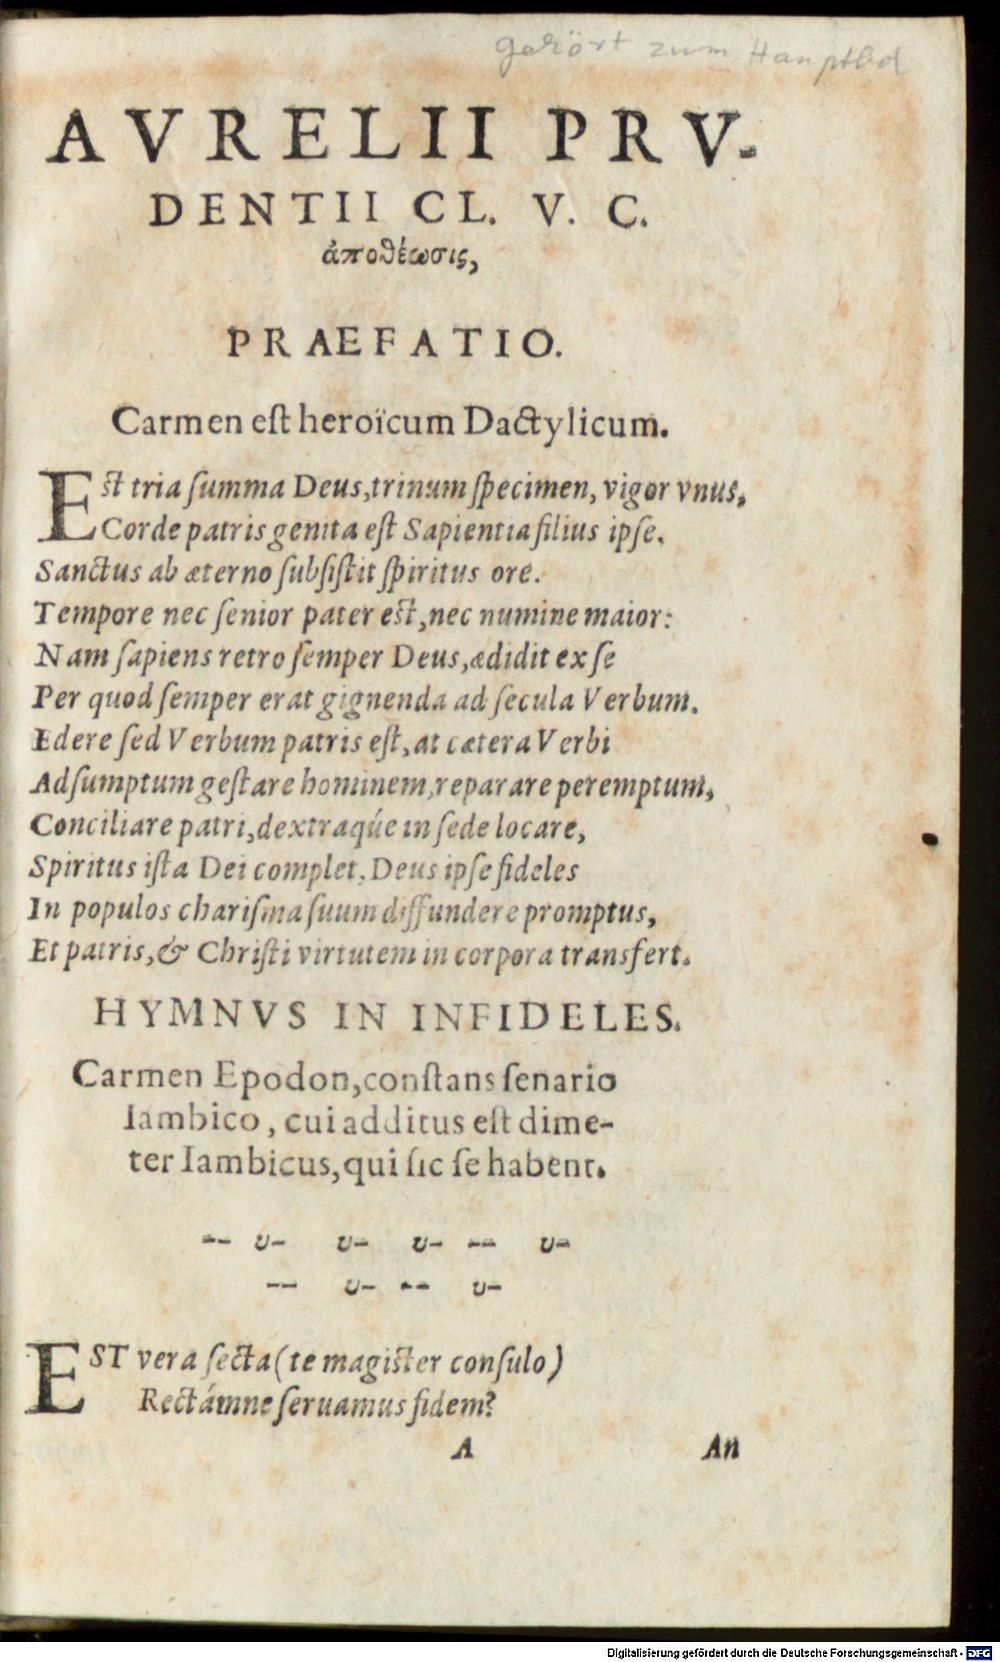 gehört zum Hauptbd
AVRELII PRV-
DENTII CL. V. C.
ἀποθέωσις,
PRAEFATIO.
Carmen eſt heroïcum Dactylicum.
Eſt tria ſumma Deus,trinum ſpecimen, vigor vnus,
Corde patris genita eſt Sapientia filius ipſe.
Sanctus ab æterno ſubſiſtit ſpiritus ore.
Tempore nec ſenior pater eſt,nec numine maior:
Nam ſapiens retro ſemper Deus,ædidit ex ſe
Per quod ſemper erat gignenda ad ſecula Verbum.
Edere ſed Verbum patris eſt,at cætera Verbi
Adſumptum geſtare hominem,reparare peremptum,
Conciliare patri,dextraq́ue in ſede locare,
Spiritus iſta Dei complet.Deus ipſe fideles
In populos chariſma ſuum diffundere promptus,
Et patris,& Chriſti virtutem in corpora transfert.
HYMNVS IN INFIDELES.
Carmen Epodon,conſtans ſenario
Iambico, cui additus eſt dime-
ter Iambicus,qui ſic ſe habent.
-- υ- υ- υ- -- υ-
-- υ- -- υ-
EST vera ſecta(te magiſter conſulo)
Rectámne ſeruamus fidem?
A An
Digitalisierung gefördert durch die Deutsche Forschungsgemeinschaft - DFG